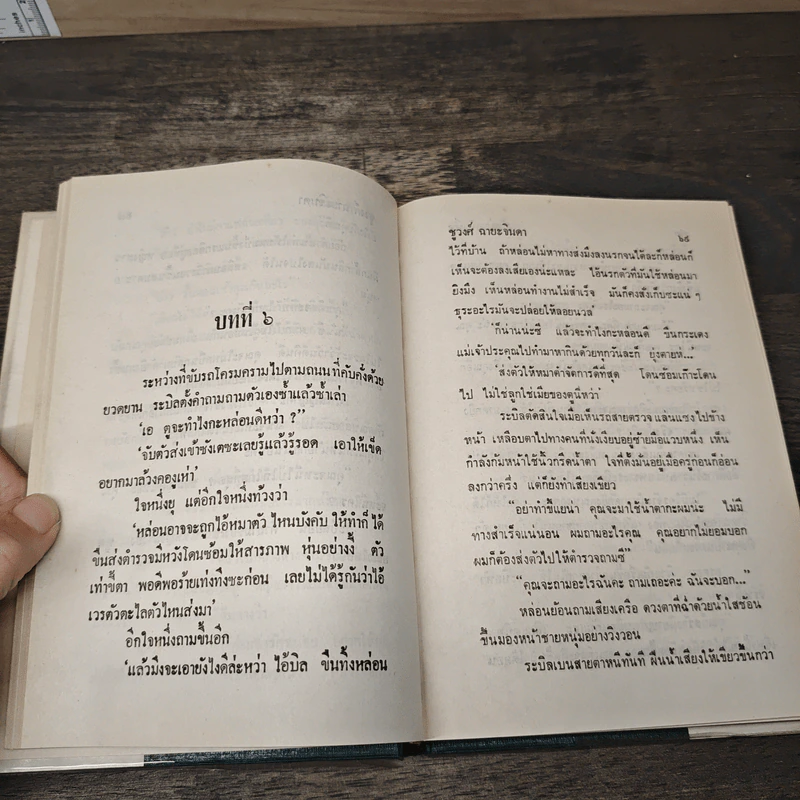 inches
บทที่ ๖
ระหว่างที่ขับรถโครมครามไปตามถนนที่คับคั่งด้วย
ยวดยาน ระบิลตั้งคำถามถามตัวเองซ้ำแล้วซ้ำเล่า
‘เอ ตูจะทำไงกะหล่อนดีหว่า ?”
‘จับตัวส่งเข้าซังเตซะเลยรู้แล้วรู้รอด เอาให้เข็ด
อยากมาล้วงคองูเห่า’
ใจหนึ่งยุ แต่อีกใจหนึ่งท้วงว่า
‘หล่อนอาจจะถูกไอ้หมาตัวไหนบังคับให้ทำก็ได้
ขืนส่งตำรวจมีหวังโดนซ้อมให้สารภาพ หุ่นอย่างงี้ ตัว
เท่าขี้ตา พอดีพอร้ายเท่งทึงซะก่อน เลยไม่ได้รู้กันว่าไอ้
เวรตัวตะไลตัวไหนส่งมา’
อีกใจหนึ่งถามขึ้นอีก
‘แล้วมึงจะเอายังไงดีล่ะหว่า ไอ้บิล ขืนทิ้งหล่อน
ชูวงศ์ ฉายะจินดา
๖๙
ไว้ที่บ้าน ถ้าหล่อนไม่หาทางส่งมึงลงนรกจนได้ละก็หล่อนก็
เห็นจะต้องลงเสียเองน่ะแหละ ไอ้นรกตัวที่มันใช้หล่อนมา
ยิงมึง เห็นหล่อนทำงานไม่สำเร็จ มันก็คงสั่งเก็บซะแน่ ๆ
ธุระอะไรมันจะปล่อยให้ลอยนวล
‘ก็น่านน่ะซี แล้วจะทำไงกะหล่อนดี ขืนกระเตง
แม่เจ้าประคุณไปทำมาหากินด้วยทุกวันละก็ ยุ่งตายห่...’
‘ส่งตัวให้หมาต๋าจัดการดีที่สุด โดนซ้อมเก๊าะโดน
ไป ไม่ใช่ลูกใช่เมียของตูนี่หว่า’
ระบิลตัดสินใจเมื่อเห็นรถสายตรวจแล่นแซงไปข้าง
หน้า เหลือบตาไปทางคนที่นั่งเงียบอยู่ซ้ายมือแวบหนึ่ง เห็น
กำลังก้มหน้าใช้นิ้วกรีดน้ำตา ใจที่ตั้งมั่นอยู่เมื่อครู่ก่อนก็อ่อน
ลงกว่าครึ่ง แต่ก็ยังทำเสียงเขียว
“อย่าทำขี้แยน่า คุณจะมาใช้น้ำตากะผมน่ะ ไม่มี
ทางสำเร็จแน่นอน ผมถามอะไรคุณ คุณอยากไม่ยอมบอก
ผมก็ต้องส่งตัวไปให้ตำรวจถามซี”
“คุณจะถามอะไรฉันคะ ถามเถอะค่ะ ฉันจะบอก...”
หล่อนย้อนถามเสียงเครือ ดวงตาที่ฉ่ำด้วยน้ำใสช้อน
ขึ้นมองหน้าชายหนุ่มอย่างวิงวอน
ระบิลเบนสายตาหนีทันที ฝืนน้ำเสียงให้เขียวขึ้นกว่า